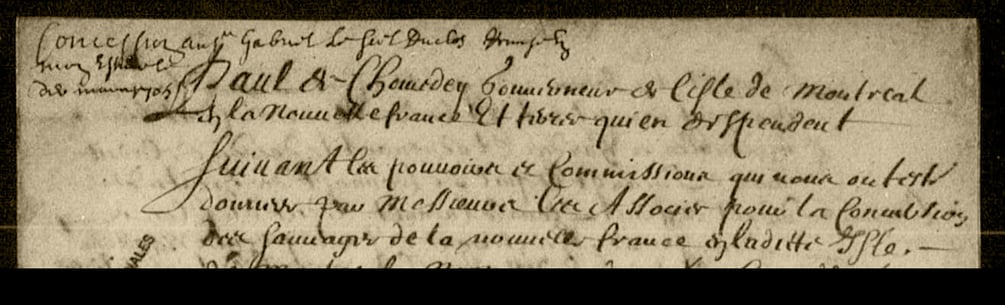 Concession au Sr Gabriel Le Sel Duclos
Paul de Chomedey Gouverneur de l'isle de Montreal
en la Nouvelle france Et terres qui en dependent
Suivant les pouvoirs & Commissions qui nous ont esté
donnees par Messieurs les Associes pour la Conversion
des sauvages de la nouvelle france en ladite Isle.